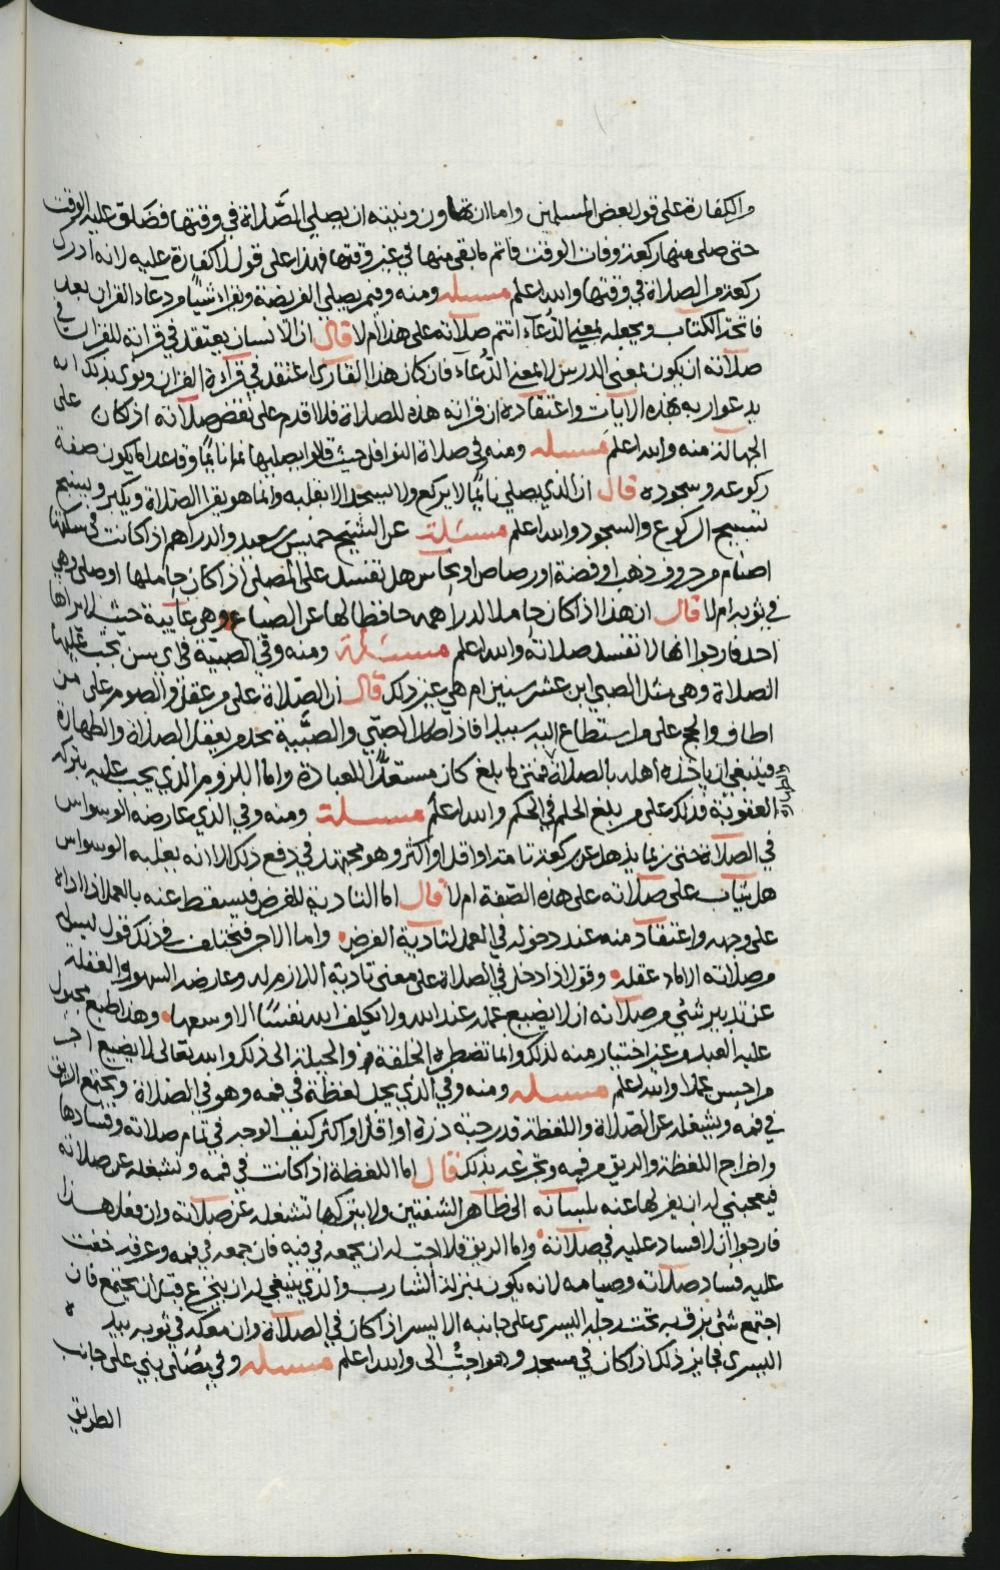 والكفارة على قول بعض المسلمين واما ان تهاون ونيته ان يصلي الصلاة في وقتها فضاق عليه الوقت
حتى صلى منها ركعة وفات الوقت فاتم ما بقي منها في غير وقتها فهذا على قول لا كفارة عليه لانه ادرك
ركعة من الصلاة في وقتها والله اعلم مسئله ومنه وفيمن يصلي الفريضة ويقراء شيئا من دعاء القران بعد
فاتحة الكتاب ويجعله بمعنى الدعاء اتتم صلاته على هذا ام لا قال ان الانسان يعتقد في قراته للقران في
صلاته ان يكون بمعنى الدرس لا بمعنى الدعاء فان كان هذا القاري اعتقد في قراءة القران ونوى بذلك انه
يدعوا ربه بهذه الايات واعتقاده ان قراته هذه للصلاة فلا اقدم على نقض صلاته اذ كان على
الجهالة منه والله اعلم مسئله ومنه وفي صلاة النوافل حيث قالوا يصليها نائما وقاعدا ما يكون صفة
ركوعه وسجوده قال ان الذي يصلي نائما لا يركع ولا يسجد الا بقلبه وانما هو يقرا الصلاة ويكبر ويسبح
تسبيح الركوع والسجود والله اعلم مسئلة عن الشيخ خميس بن سعيد والدراهم اذا كانت في سكتها
اصنام من حروف ذهب او فضة او رصاص او نحاس هل تفسد على المصلي اذا كان حاملها او صلى وهي
في ثوبه ام لا قال ان هذا اذا كان حاملا لدراهمه حافظا لها عن الضياع وهي غايبة حيث لا يراها
احد فارجوا انها لا تفسد صلاته والله اعلم مسئلة ومنه وفي الصبية في اي سن تجب عليها
الصلاة وهي مثل الصبي ابن عشر سنين ام هي غير ذلك قال ان الصلاة على من عقل والصوم على من
اطاق والحج على من استطاع اليه سبيلا فاذا صار الصبي والصبية بحد من يعقل الصلاة والطهارة
فينبغي ان ياخذه اهله بالصلاة فمتى ما بلغ كان مستعدا للعبادة واما اللزوم الذي يجب عليه بتركه
والطهارة
العقوبة فذلك على من بلغ الحلم في الحكم والله اعلم مسئلة ومنه وفي الذي عارضه الوسواس
في الصلاة حتى ربما يذهل عن ركعة تامة او اقل او اكثر وهو مجتهد في دفع ذلك الا انه يغلبه الوسواس
هل يثاب على صلاته على هذه الصفة ام لا قال اما التادية للفرض فيسقط عنه بالعمل اذا اداه
على وجهه واعتقاد منه عند دخوله في العمل لتادية الفرض واما الاجر فيختلف في ذلك قول ليس له
من صلاته الا ما عقله وقول اذا دخل في الصلاة على معنى تادية اللازم له وعارضه السهو او الغفلة
عن تدبير شئ من صلاته ان لا يضيع عمله عند الله ولا يكلف الله نفسا الا وسعها وهذا طبع مجبول
عليه العبد من غير اختيار منه لذلك وانما تضطره الخلقة والجبلة الى ذلك والله تعالى لا يضيع اجر
من احسن عملا والله اعلم مسئله ومنه وفي الذي يجد لفظة في فمه وهو في الصلاة ويجتمع الريق
في فمه ويشغله عن الصلاة واللفظة قدر حبة ذرة او اقل او اكثر كيف الوجه في تمام صلاته وفسادها
واخراج اللفظة والريق من فمه وتجرعه بذلك قال اما اللفظة اذا كانت في فمه وتشغله عن صلاته
فيعجبني له ان يعزلها عنه بلسانه الى ظاهر الشفتين ولا يتركها تشغله عن صلاته وان فعل هذا
فارجوا ان لا فساد عليه في صلاته واما الريق فلا احب له ان يجمعه في فيه فان جمعه في فمه وعرفه خفت
عليه فساد صلاته وصيامه لانه يكون بمنزلة الشارب والذي ينبغي له ان يتجرع قبل ان يجتمع فان
اجتمع شئ بزق به تحت رجله اليسرى على جانبه الايسر اذا كان في الصلاة وان معكه في ثوبه بيده
اليسرى فجايز ذلك اذا كان في مسجد وهو احب الى والله اعلم مسئله وفي مصلى بني على جانب
الطريق